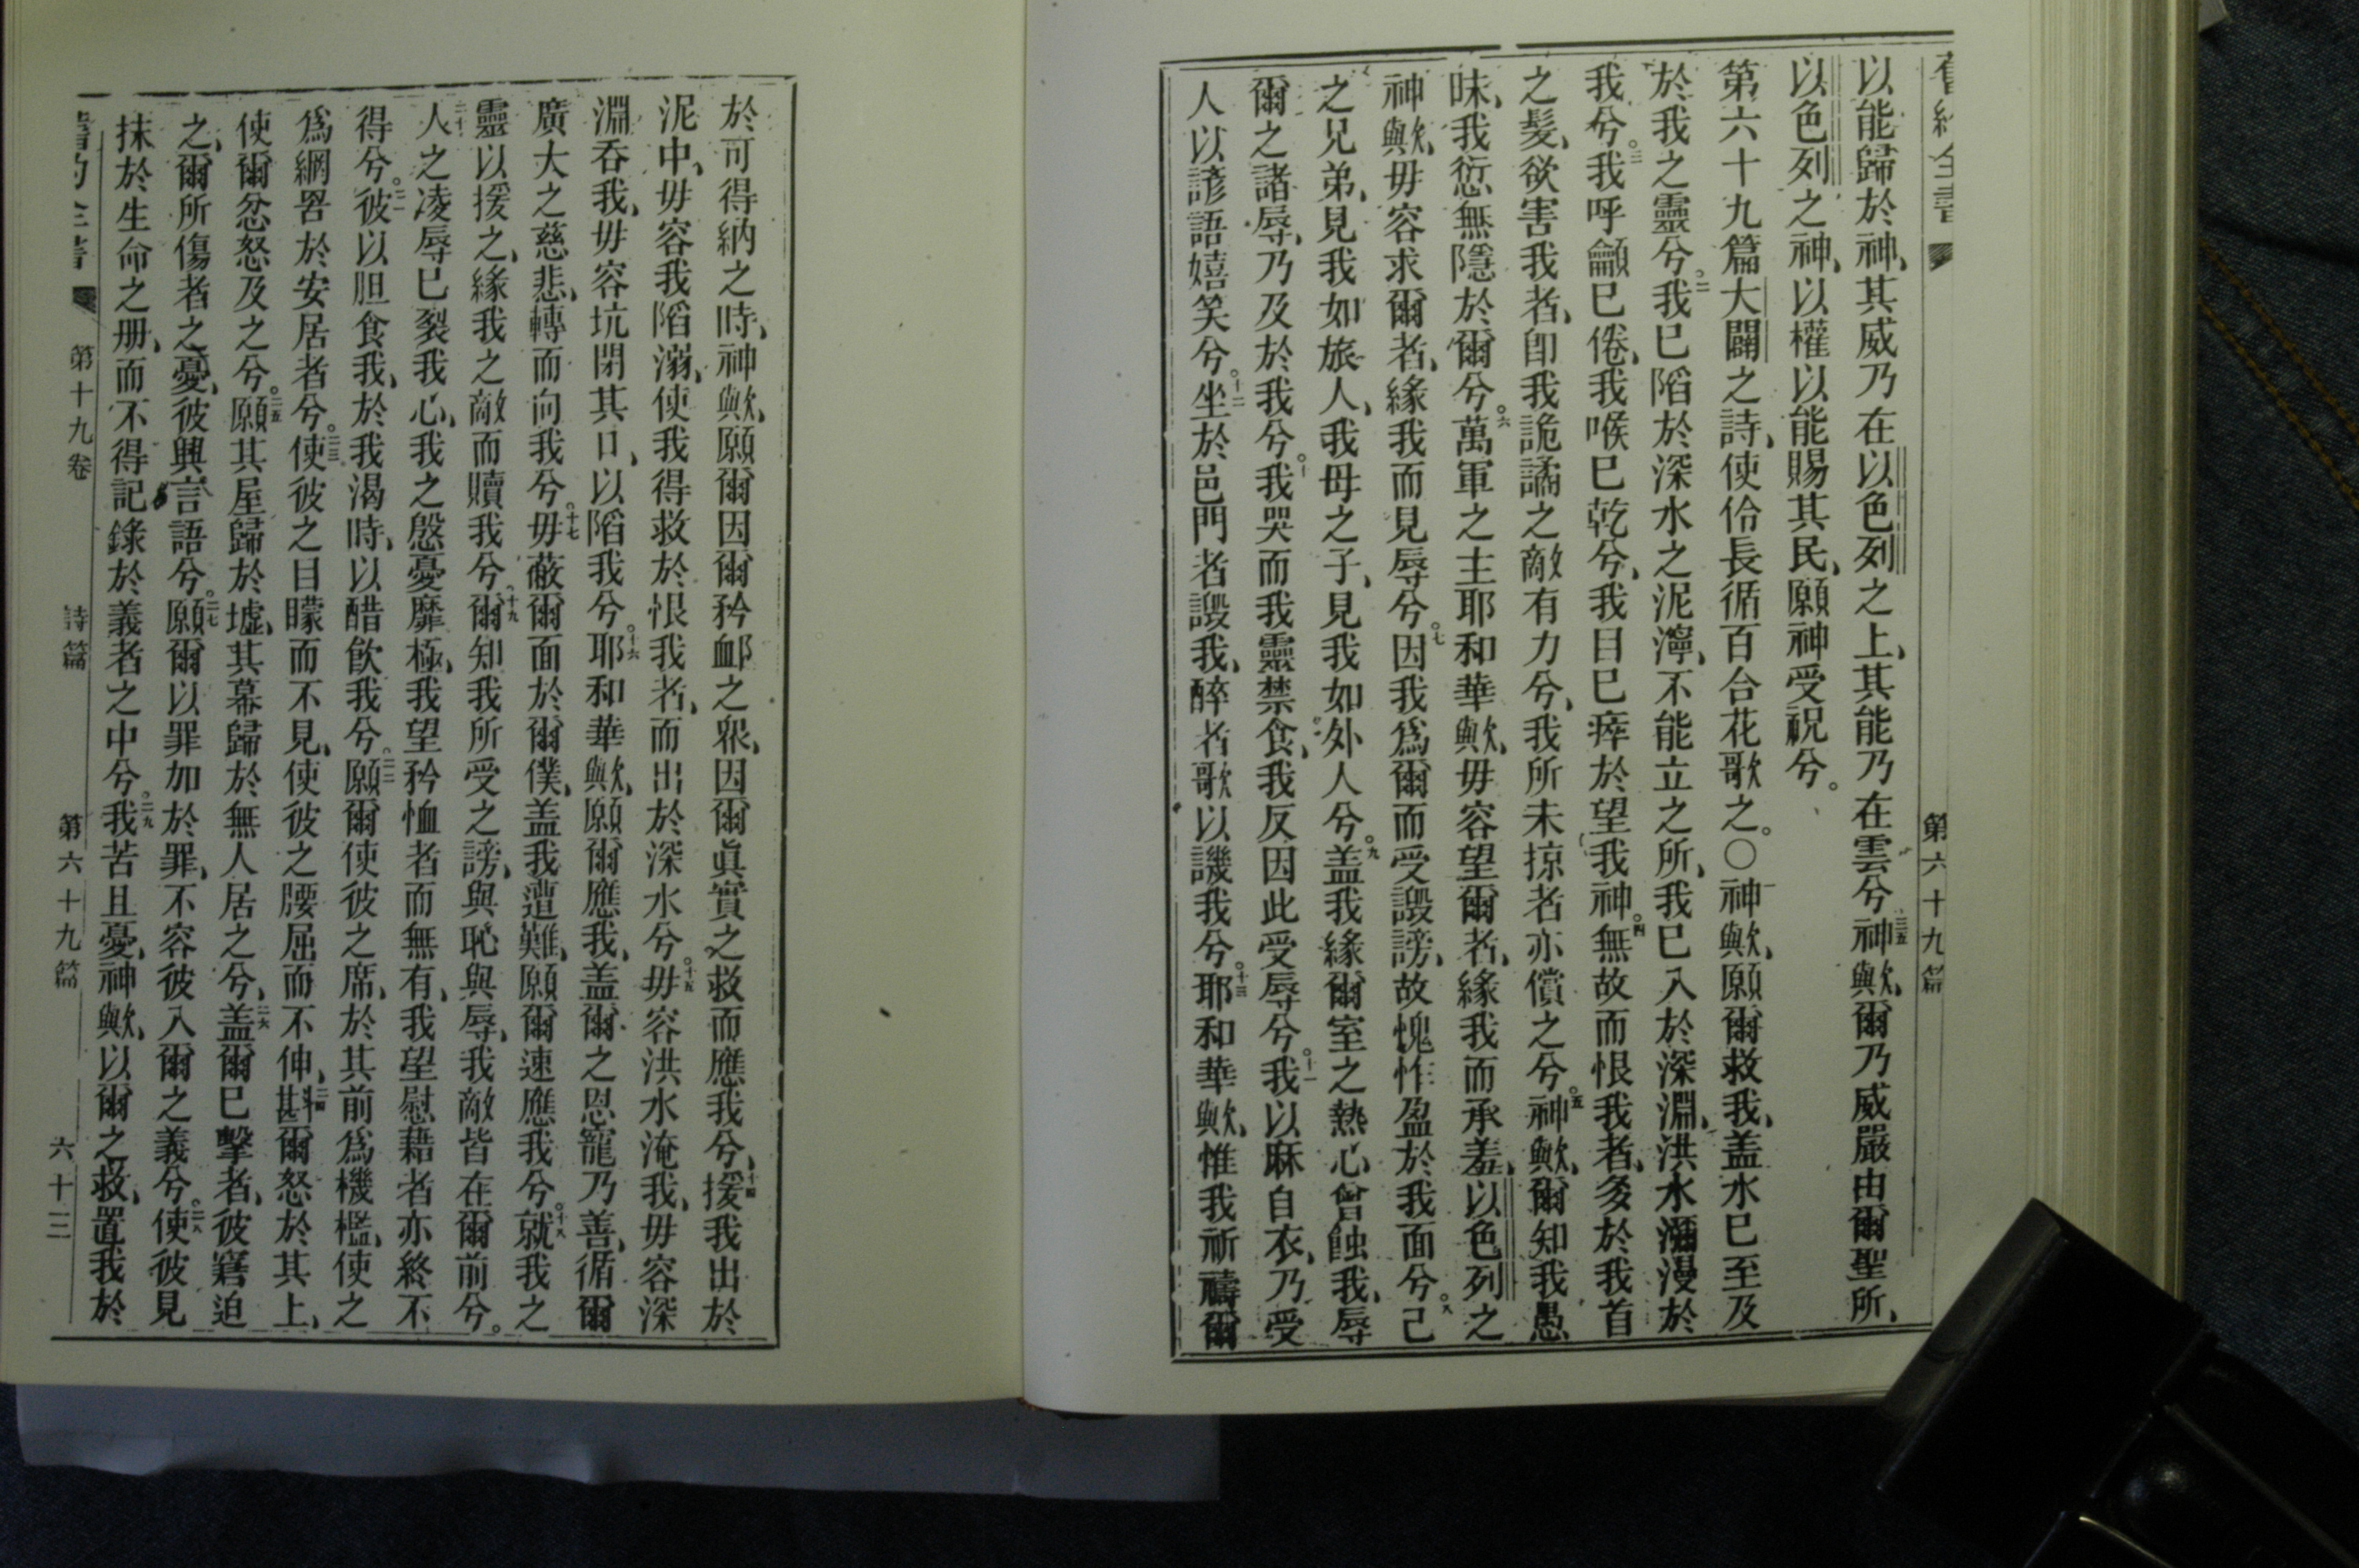 第六十九篇
以能歸於神、其威乃在以色列之上、其能乃在雲兮、三五神歟、爾乃威嚴由爾聖所、
以色列之神、以權以能賜其民、願神受祝兮。
第六十九篇大闢之詩、使伶長循百合花歌之。○一神歟、願爾救我、盖水已至及
於我之靈兮。二我已陷於深水之泥濘、不能立之所、我已入於深淵、洪水瀰漫於
我兮。三我呼籲已倦、我喉已乾兮、我目已瘁於望我神。四無故而恨我者、多於我首
之髮、欲害我者、卽我詭譎之敵有力兮、我所未掠者亦償之兮。五神歟、爾知我愚
昧、我愆無隱於爾兮。六萬軍之主耶和華歟、毋容望爾者、緣我而承羞、以色列之
神歟、毋容求爾者、緣我而見辱兮。七因我爲爾而受譭謗、故愧怍盈於我面兮。八己
之兄弟、見我如旅人、我母之子、見我如外人兮。九盖我緣爾室之熱心、曾蝕我、辱
爾之諸辱、乃及於我兮。十我哭而我靈禁食、我反因此受辱兮。十一我以麻自衣、乃受
人以諺語嬉笑兮。十二坐於邑門者譭我、醉者歌以譏我兮。十三耶和華歟、惟我祈禱爾
於可得納之時、神歟、願爾因爾矜衈之衆、因爾眞實之救而應我兮、十四援我出於
泥中、毋容我陷溺、使我得救於恨我者、而出於深水兮。十五毋容洪水淹我、毋容深
淵吞我、毋容坑閉其口、以陷我兮。十六耶和華歟、願爾應我、盖爾之恩寵乃善、循爾
廣大之慈悲、轉而向我兮。十七毋蔽爾面於爾僕、盖我遭難、願爾速應我兮。十八就我之
靈以援之、緣我之敵而贖我兮。十九爾知我所受之謗、與恥與辱、我敵皆在爾前兮。
二十人之凌辱已裂我心、我之慇憂靡極、我望矜恤者而無有、我望慰藉者亦終不
得兮。二一彼以胆食我、於我渴時、以醋飮我兮。二二願爾使彼之席、於其前爲機檻、使之
爲網罟於安居者兮。二三使彼之目矇而不見、使彼之腰屈而不伸、二四斟爾怒於其上、
使爾忿怒及之兮。二五願其屋歸於墟、其幕歸於無人居之兮、二六盖爾已擊者、彼窘迫
之、爾所傷者之憂、彼興言語兮。二七願爾以罪加於罪、不容彼入爾之義兮。二八使彼見
抹於生命之册、而不得記錄於義者之中兮。二九我苦且憂、神歟、以爾之救、置我於
第十九卷 詩篇 第六十九篇 六十三